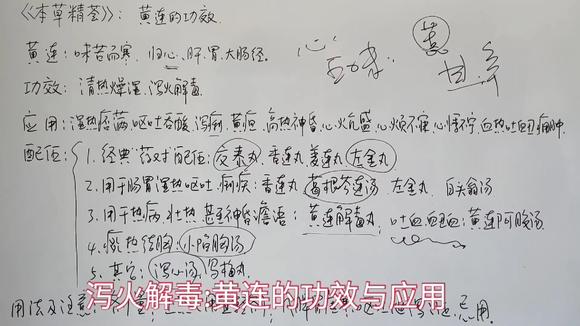 《本草精荟》：黄连的功效
黄连：味苦而寒，归心、肝、胃、大肠经。
心
功效：清热燥湿，泻火解毒。
应用：湿热痞满，呕吐吞酸，泻痢，黄疸，高热神昏，心火亢盛，心烦不寐，心悸不宁，血热吐衄，痈肿
配伍：
1.经典药对配伍：交泰丸 香连丸 姜连丸 左金丸
2.用于肠胃湿热呕吐 痢疾：香连丸 葛根芩连汤 左金丸 白头翁汤
3.用于热病，壮热 甚至神昏谵语：黄连解毒丸；吐血衄血：黄连阿胶汤
4.痰热结胸：小陷胸汤
5.其它：泻心汤
泻火解毒,黄连的功效与应用
用法及注意：
忌用。